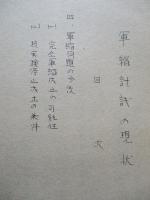 軍縮討議の現状
目次
四、軍縮問題の今次
(一) 完全軍縮成立の可能性
(二) 核実験停止成立の条件